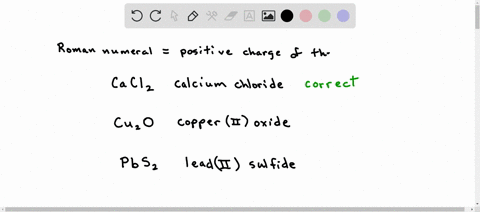 Roman numeral = positive charge of th
CaCl₂ calcium chloride correct
Cu₂O copper (II) oxide
PbS₂ lead(II) sulfide